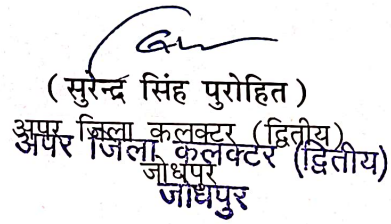 (सुरेन्द्र सिंह पुरोहित)
अपर जिला कलक्टर (द्वितीय)
अपर जिला कलक्टर (द्वितीय)
जोधपुर
जोधपुर